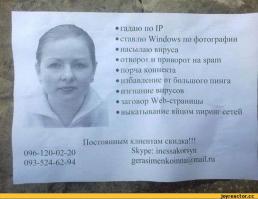 • гадаю по IP
• ставлю Windows по фотографии
• насылаю вируса
• отворот и приворот на spam
• порча коннекта
• избавление от большого пинга
• изгнание вирусов
• заговор Web-страницы
• выкатывание яйцом пиринг сетей
Постоянным клиентам скидка!!!
096-120-02-20
Skype: inessakorvyn
093-524-62-94
gerasimenkoinna@mail.ru
joyreactor.cc